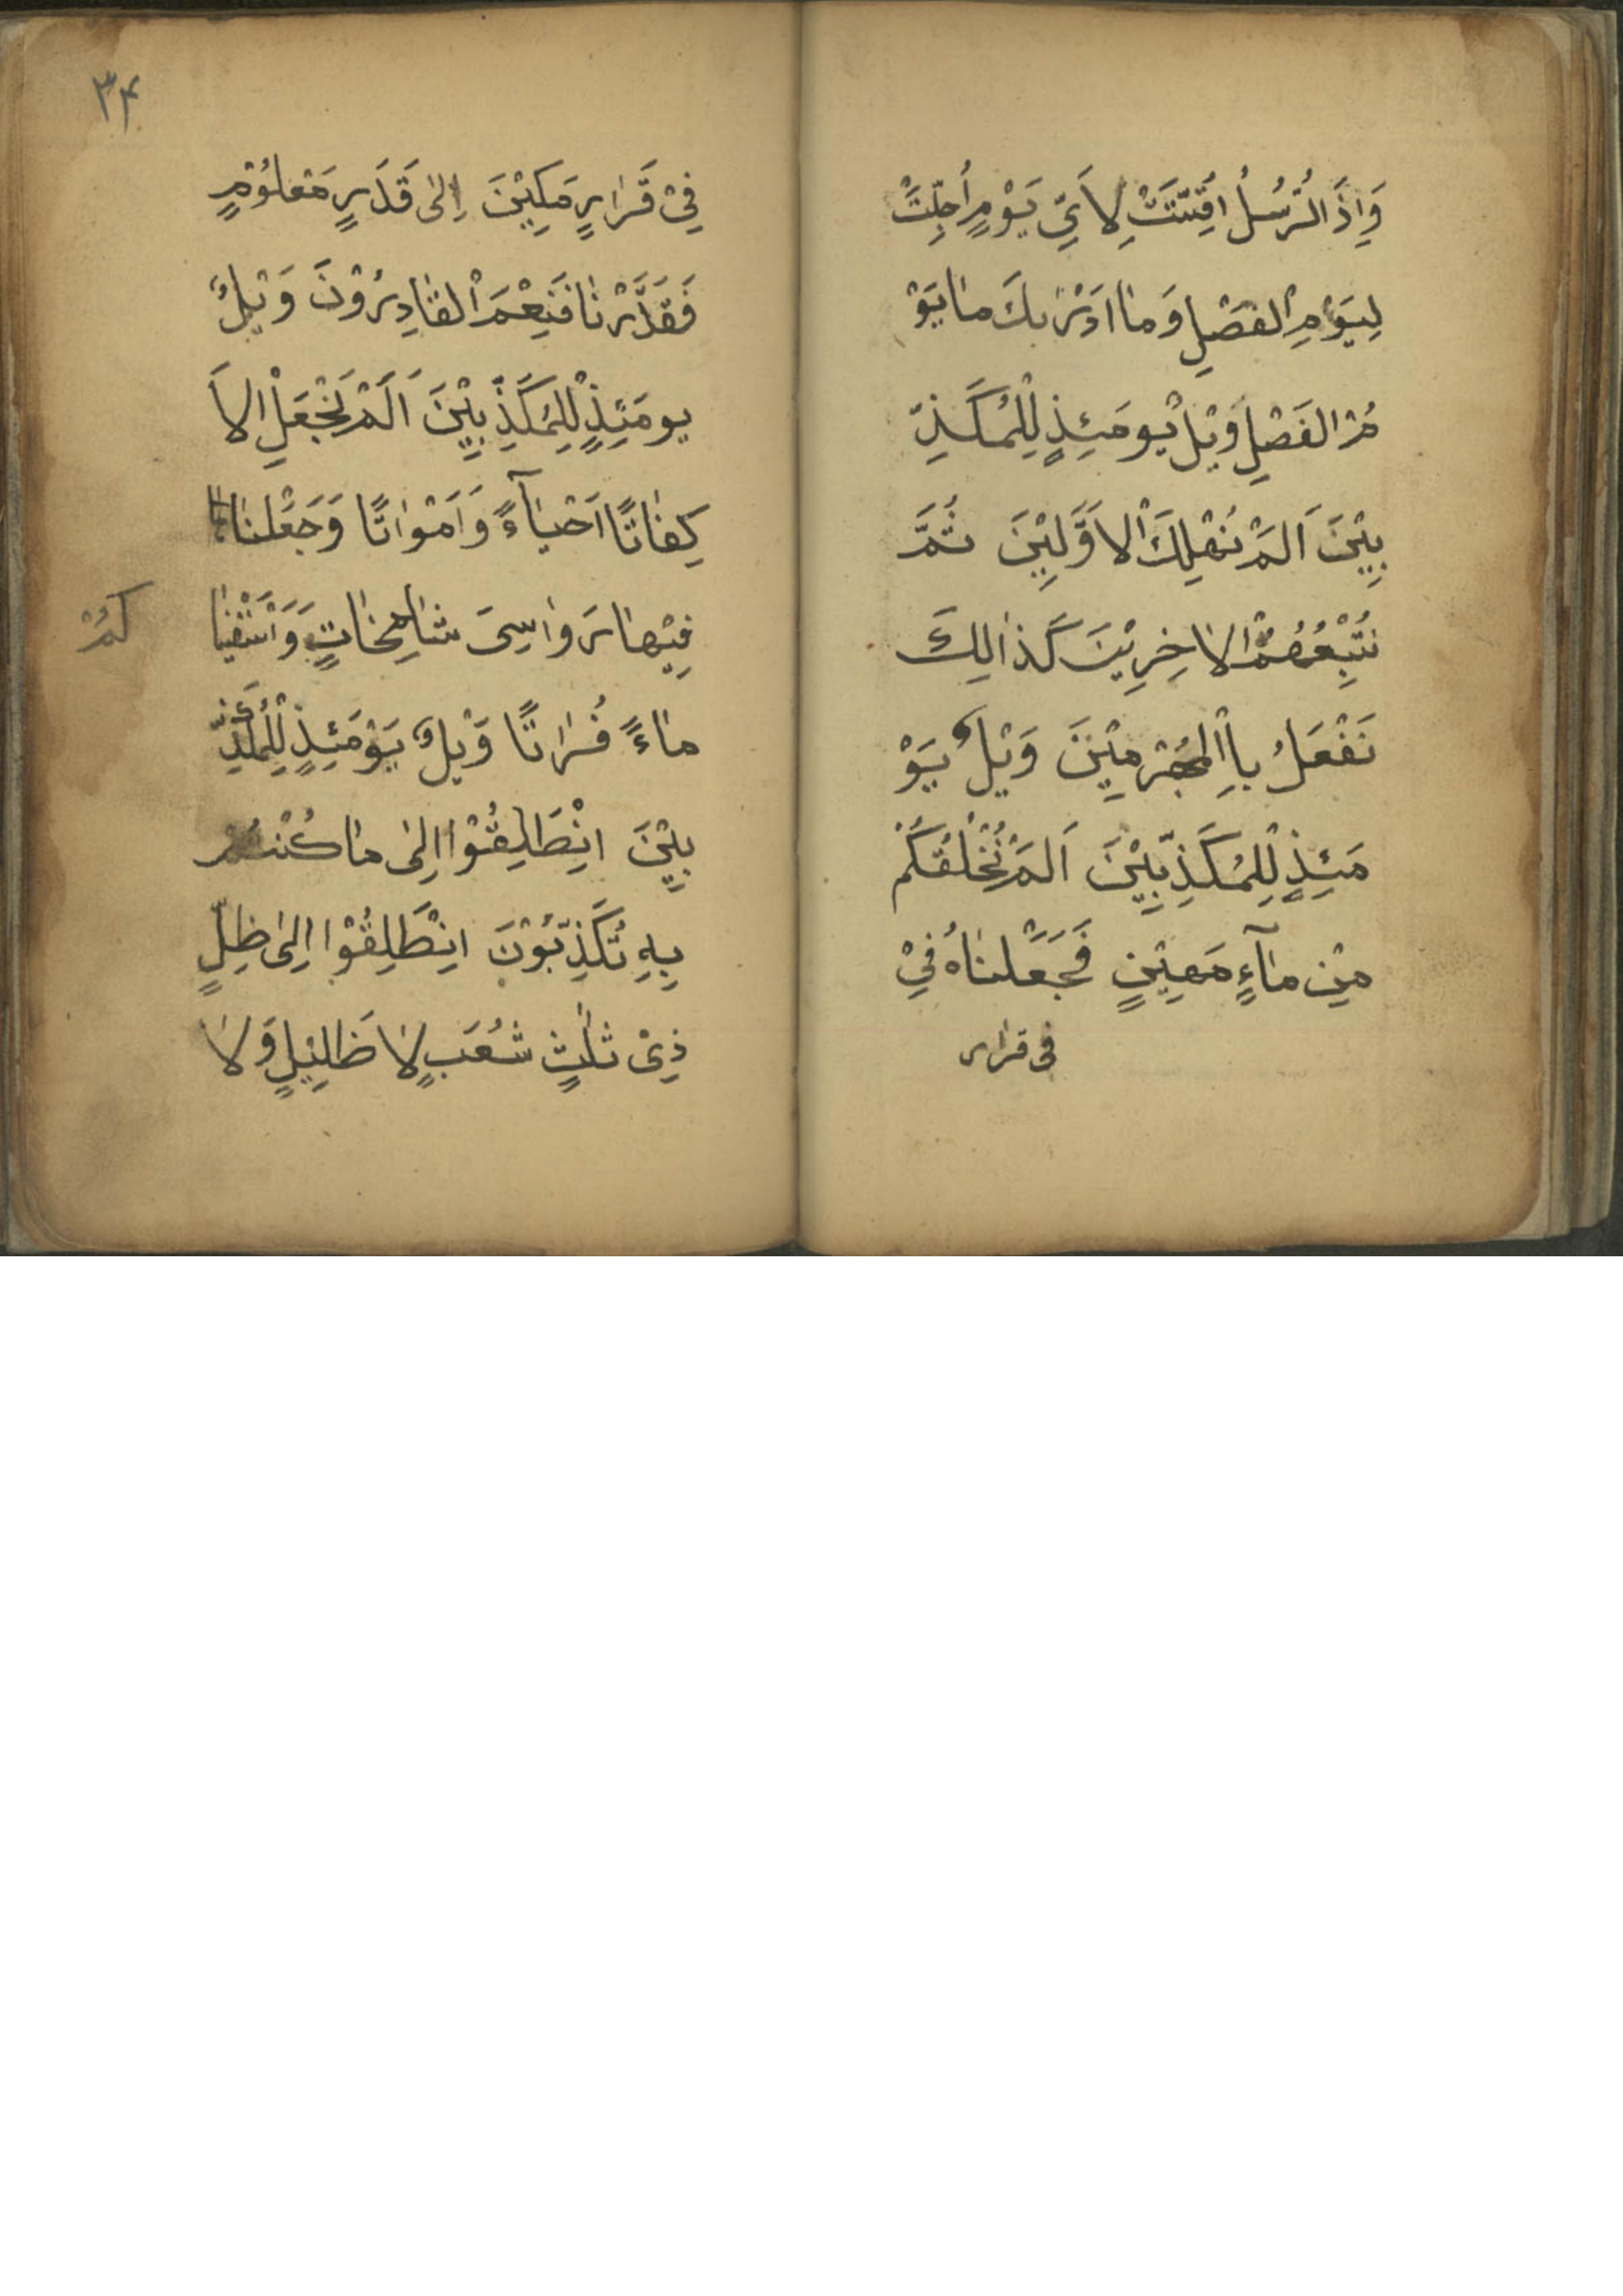 وَاِذَ الرُّسُلُ اُقِتَّتَتْ لِاَيِّ يَوْمٍ اُجِّلَتْ
لِيَوْمِ الْفَصْلِ وَمٰا اَدْرٰيكَ مٰا يَوْ
مُ الفَصْلِ وَيْلٌ يَومَئِذٍ لِلْمُكَذِّ
بِيْنَ اَلَمْ نُهْلِكَ الْاَوَّلِيْنَ ثُمَّ
نُتْبِعُهُمُ الْاٰخِرِيْنَ كَذٰالِكَ
نَفْعَلُ بِاالْمُجْرِمِيْنَ وَيْلٌ يَوْ
مَئِذٍ لِلْمُكَذِّبِيْنَ اَلَمْ نَخْلُقْكُمْ
مِنْ مٰآءٍ مَهِيْنٍ فَجَعَلْنٰاهُ فِيْ
فى قرار
٣۴
فِيْ قَرٰارٍ مَكِيْنَ اِلىٰ قَدَرٍ مَعْلُوْمٍ
فَقَدَّرْنٰا فَنِعْمَ الْقٰادِرُوْنَ وَيْلٌ
يومَئِذٍ لِلْمُكَذِّبِيْنَ اَلَمْ نَجْعَلِ الْاَ
كِفٰاتًا اَحْيٰآءً وَاَمْوٰاتًا وَجَعَلْنٰا
فِيْهٰا رَوٰاسِىَ شٰامِخٰاتٍ وَاَسْقَيْنٰا
كُمْ
مٰاءً فُرٰاتًا وَيْلٌ يَوْمَئِذٍ لِلْمُكَذِّ
بِيْنَ انْطَلِقُوْا اِلىٰ مٰا كُنْتُمْ
بِهِ تُكَذِّبُوْنَ انْطَلِقُوْا اِلىٰ ظِلٍّ
ذِىْ ثَلٰثٍ شُعَبٍ لٰا ظَلِيْلٍ وَلٰا